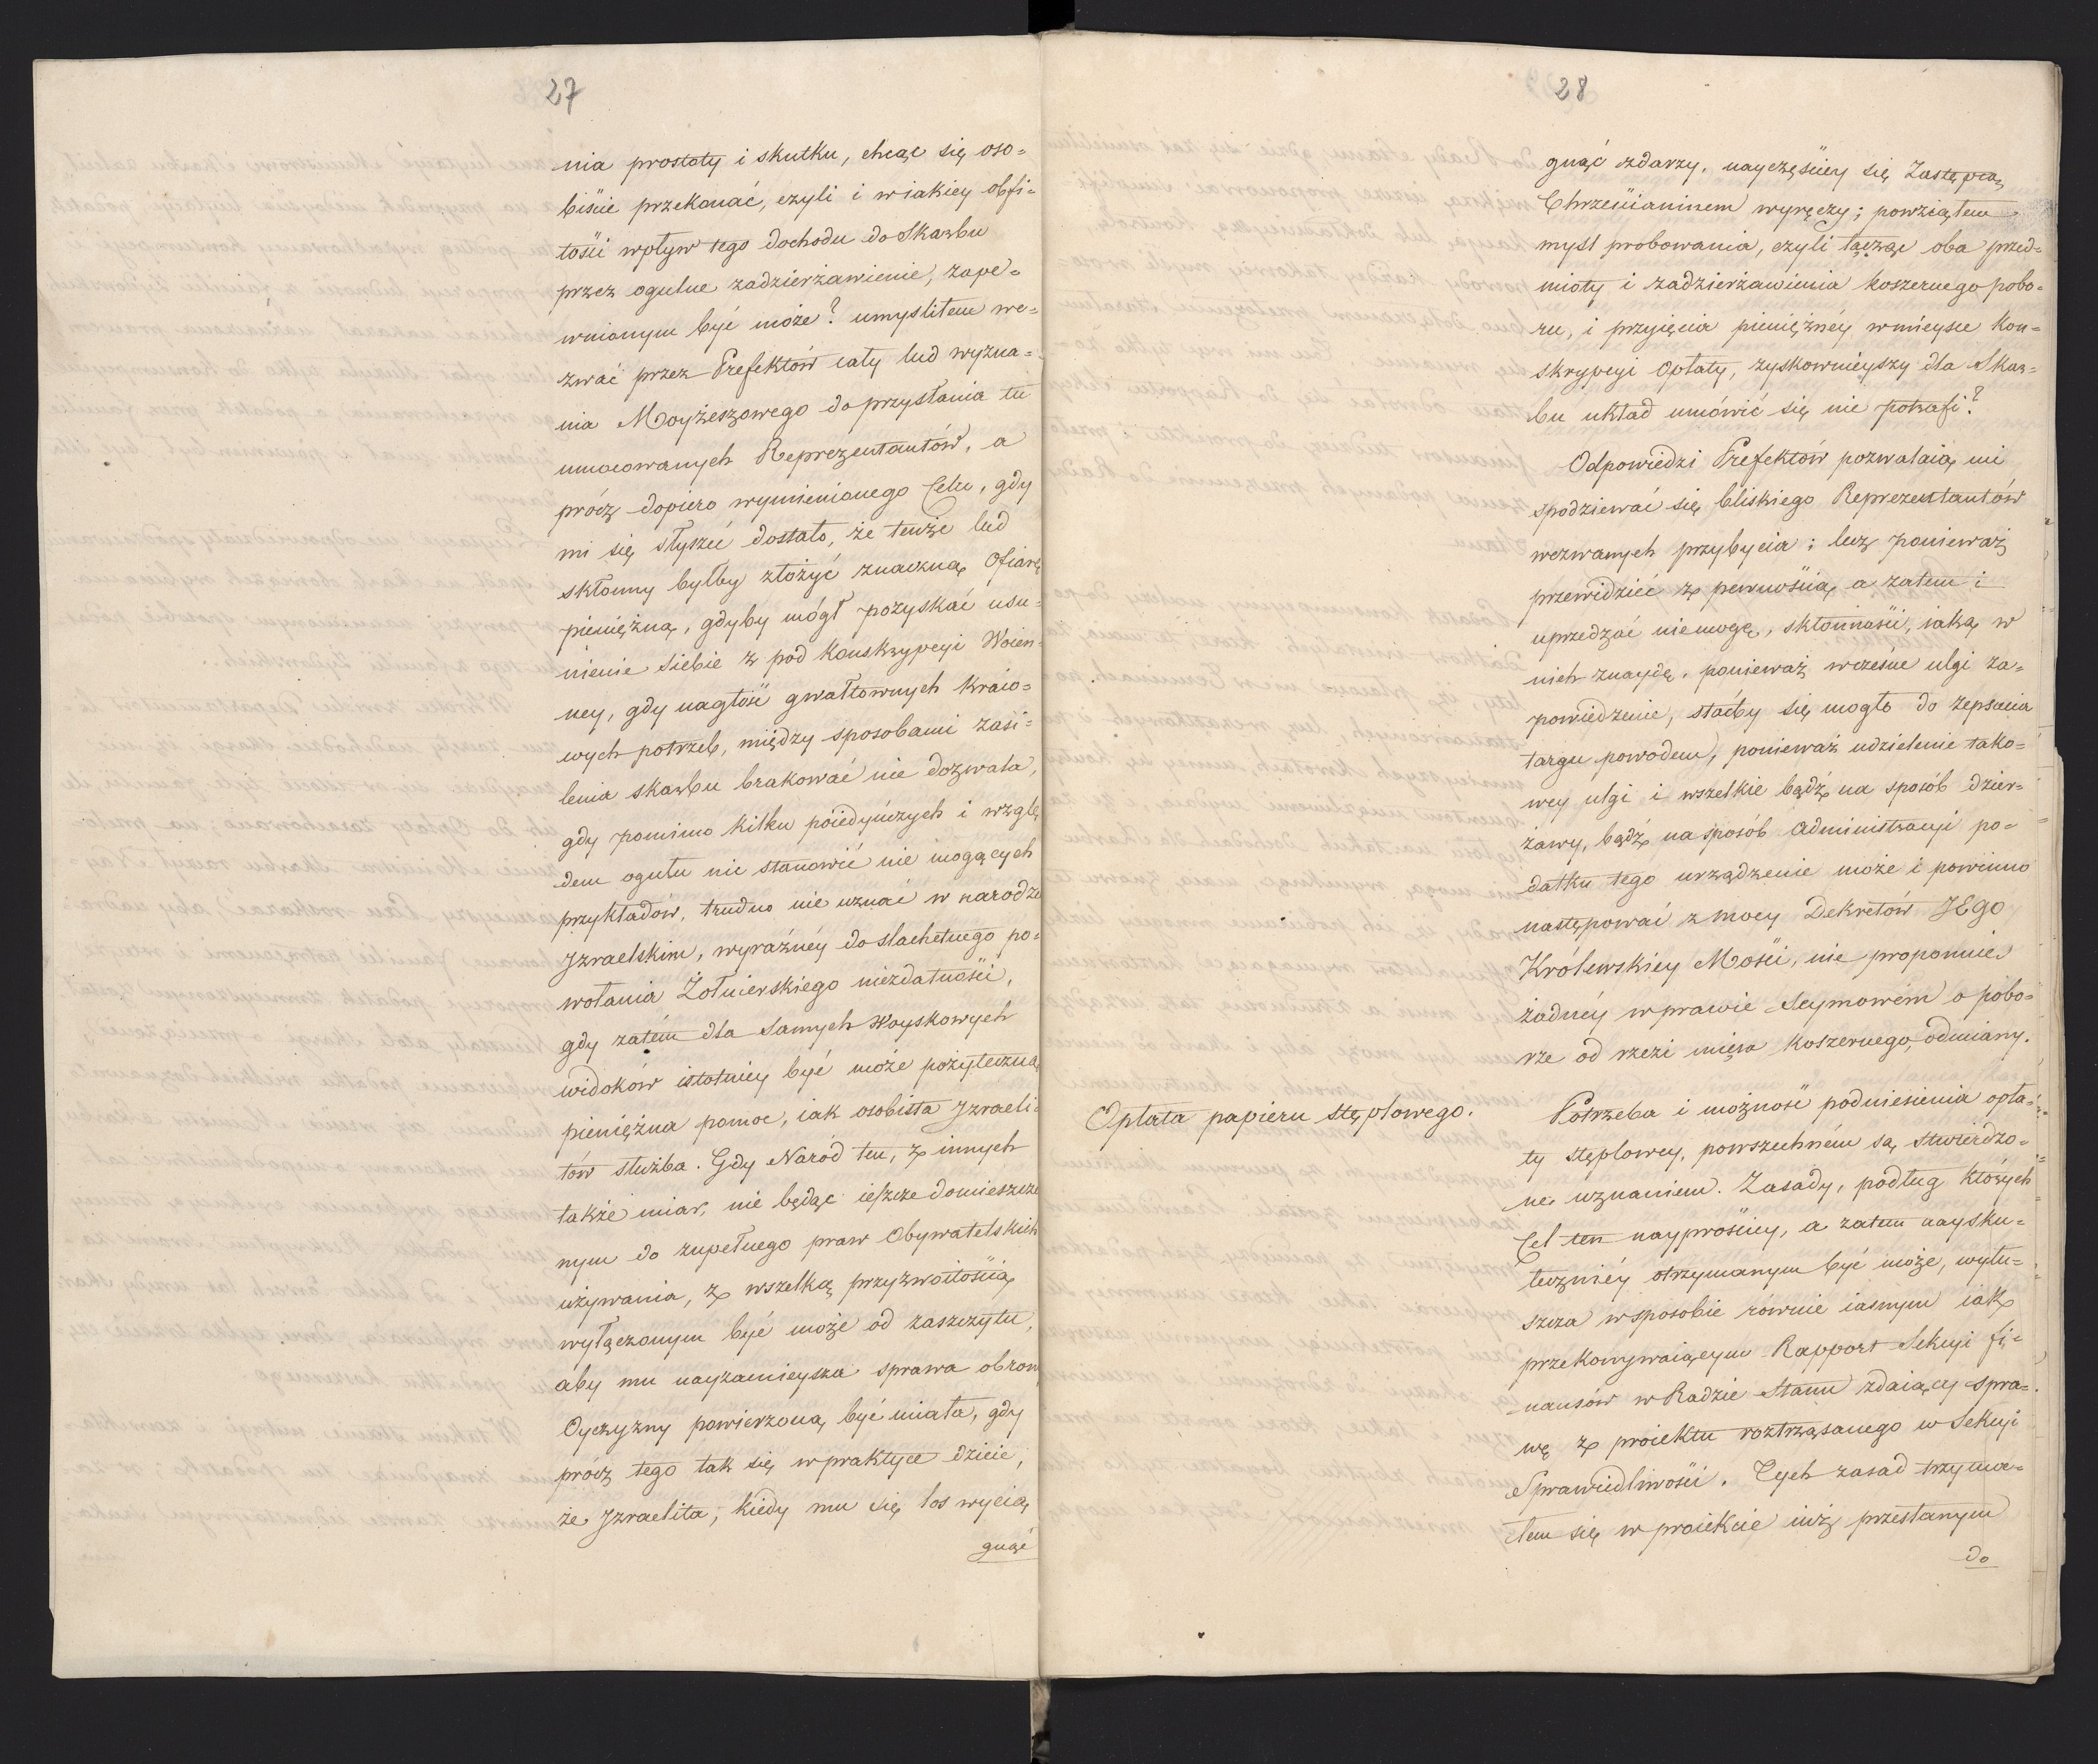 27
nia prostoty i skutku, chcąc się oso=
biście przekonać, czyli i w iakiey obfi=
tości wpływ tego dochodu do Skarbu
przez ogulne zadzierżawienie, zape=
wnionym być może? umyśliłem we=
zwać przez Prefektów cały lud wyzna=
nia Moyżeszowego do przysłania tu
umocowanych Reprezentantów, a
prócz dopiero wymienionego Celu, gdy
mi się słyszéć dostało, że tenże lud
skłonny byłby złożyć znaczną Ofiarę
pieniężną, gdyby mógł pozyskać usu=
nienie siebie z pod Konskrypcyi Woien=
ney, gdy nagłość gwałtownych kraio=
wych potrzeb, między sposobami zasi=
lenia skarbu brakować nie dozwala,
gdy pomimo kilku poiedyńczych i wzglę
dem ogułu nic stanowić nie mogących
przykładów, trudno nie uznać w narodzie
Jzraelskim, wyraźnéy do slachetnego po=
wołania Żołnierskiego niezdatności,
gdy zatém dla samych Woyskowych
widoków istotniey być może pożyteczną
pieniężna pomoc, iak osobista Jzraeli=
tów służba. Gdy Naród ten, z innych
także miar, nie będąc ieszcze domieszczo
nym do zupełnego praw Obywatelskich
używania, z wszelką przyzwoitością
wyłączonym być może od zaszczytu,
aby mu nayzamieysza sprawa obrony
Oyczyzny powierzoną być miała, gdy
prócz tego tak się w praktyce dzieie,
że Jzraelita, kiedy mu się los wycią
gnąć
28
gnąć zdarzy, nayczęściey się Zastępcą
Chrześcianinem wyręczy; powziąłem
myśl probowania, czyli łącząc oba przed=
mioty i zadzierżawienia koszernego pobo=
ru, i przyięcia pieniężnéy w mieysce Kon=
skrypcyi Opłaty, zyskownieyszy dla Skar=
bu układ umówić się nie potrafi?
Odpowiedzi Prefektów pozwalaią mi
spodziewać się bliskiego Reprezentantów
wezwanych przybycia; lecz ponieważ
przewidzieć z pewnością, a zatem i
uprzedzać niemogę, skłonności, iaką w
nich znaydę, ponieważ wcześne ulgi za=
powiedzenie, stać by się mogło do zepsucia
targu powodem, ponieważ udzielenie tako=
wey ulgi i wszelkie bądź na sposób dzier=
żawy, bądź na sposób Administracyi po=
datku tego urządzenie może i powinno
następować z mocy Dekretów JEgo
Królewskiey Mości, nie proponuie
żadnéy w prawie Seymowém o pobo=
rze od rzezi mięsa koszernego, odmiany.
Opłata papieru stęplowego.
Potrzeba i możność podniesienia opła=
ty stęplowey, powszechném są stwierdzo=
ne uznaniem. Zasady, podług których
Cel ten nayprościey, a zatem naysku=
teczniéy otrzymanym być może, wyłu=
szcza w sposobie równie iasnym iak
przekonywaiącym Rapport Sekcyi fi=
nansów w Radzie Stanu zdaiący spra=
wę z proiektu roztrząsanego w Sekcyi
Sprawiedliwości. Tych zasad trzyma=
łem się w proiekcie iuż przesłanym
do